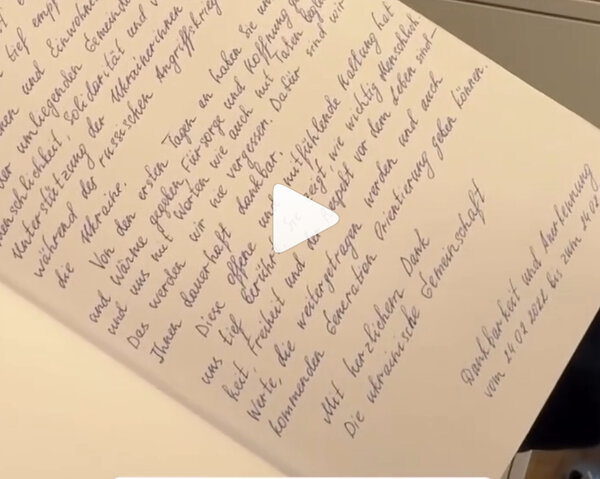 tief empf
nen und Einwohne
der umliegenden Gemeinde
Menschlichkeit, Solidarität und V
Unterstützung der Ukrainerinnen
während des russischen Angriffskrieg
die Ukraine.
Von den ersten Tagen an haben Sie un
und Wärme gegeben, Fürsorge und Hoffnung ge
und uns mit Worten wie auch mit Taten beglei
Das werden wir nie vergessen. Dafür sind wir
Ihnen dauerhaft dankbar.
Diese offene und mitfühlende Haltung hat
uns tief berührt. Sie zeigt, wie wichtig Menschlich-
keit, Freiheit und der Respekt vor dem Leben sind
Werte, die weitergetragen werden und auch
kommenden Generation Orientierung geben können.
Mit herzlichem Dank
Die ukrainische Gemeinschaft
Dankbarkeit und Anerkennung
vom 24.02.2022 bis zum 24.02